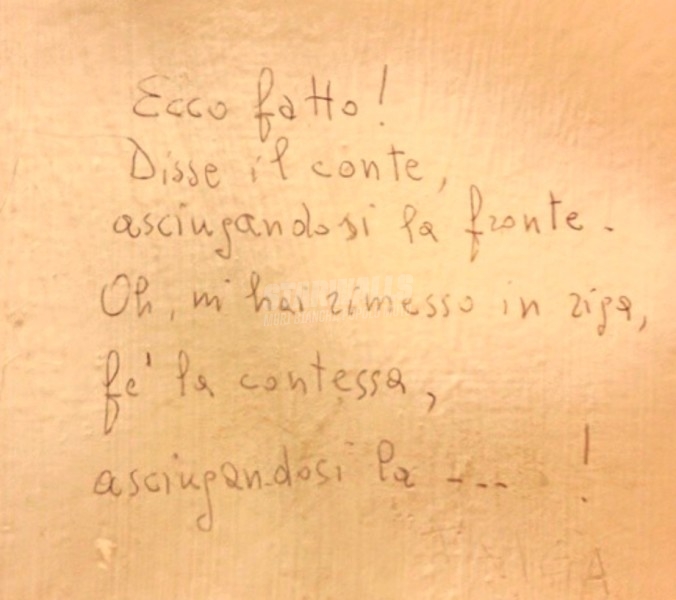 Ecco fatto!
Disse il conte,
asciugandosi la fronte.
Oh, m'hai rimesso in riga,
fe' la contessa,
asciugandosi la ---- !